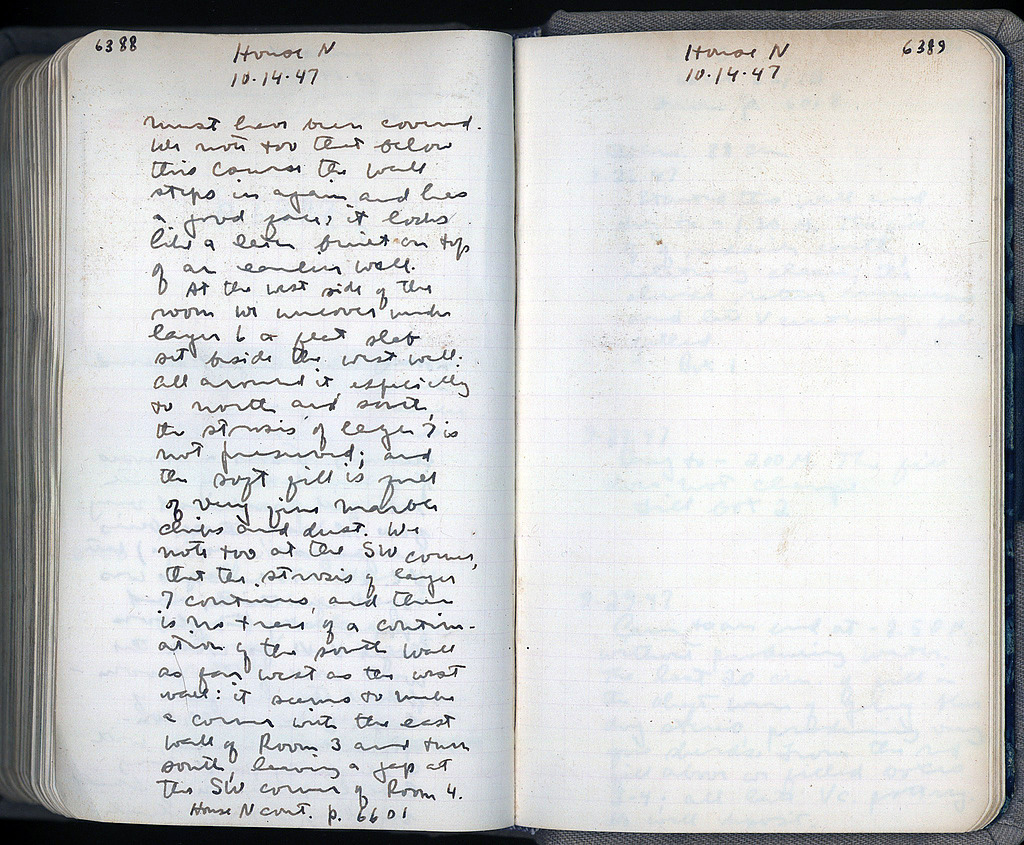 6388
House N
10.14.47
must have been covered.
We note too that below
this course the wall
steps in again and has
a good face; it looks
like a later built on top
of an earlier wall.
At the west side of the
room we uncover under
layer 6 a flat slab
set beside the west wall.
All around it especially
to north and south,
the strosis of layer 7 is
not preserved; and
the soft fill is full
of very fine marble
chips and dust. We
note too at the SW corner,
that the strosis of layer
7 continues, and there
is no trace of a continu-
ation of the south wall
as far west as the west
wall: it seems to make
a corner with the east
wall of Room 3 and turn
south, leaving a gap at
the SW corner of Room 4.
House N cont. p. 6601
House N
6389
10.14.47